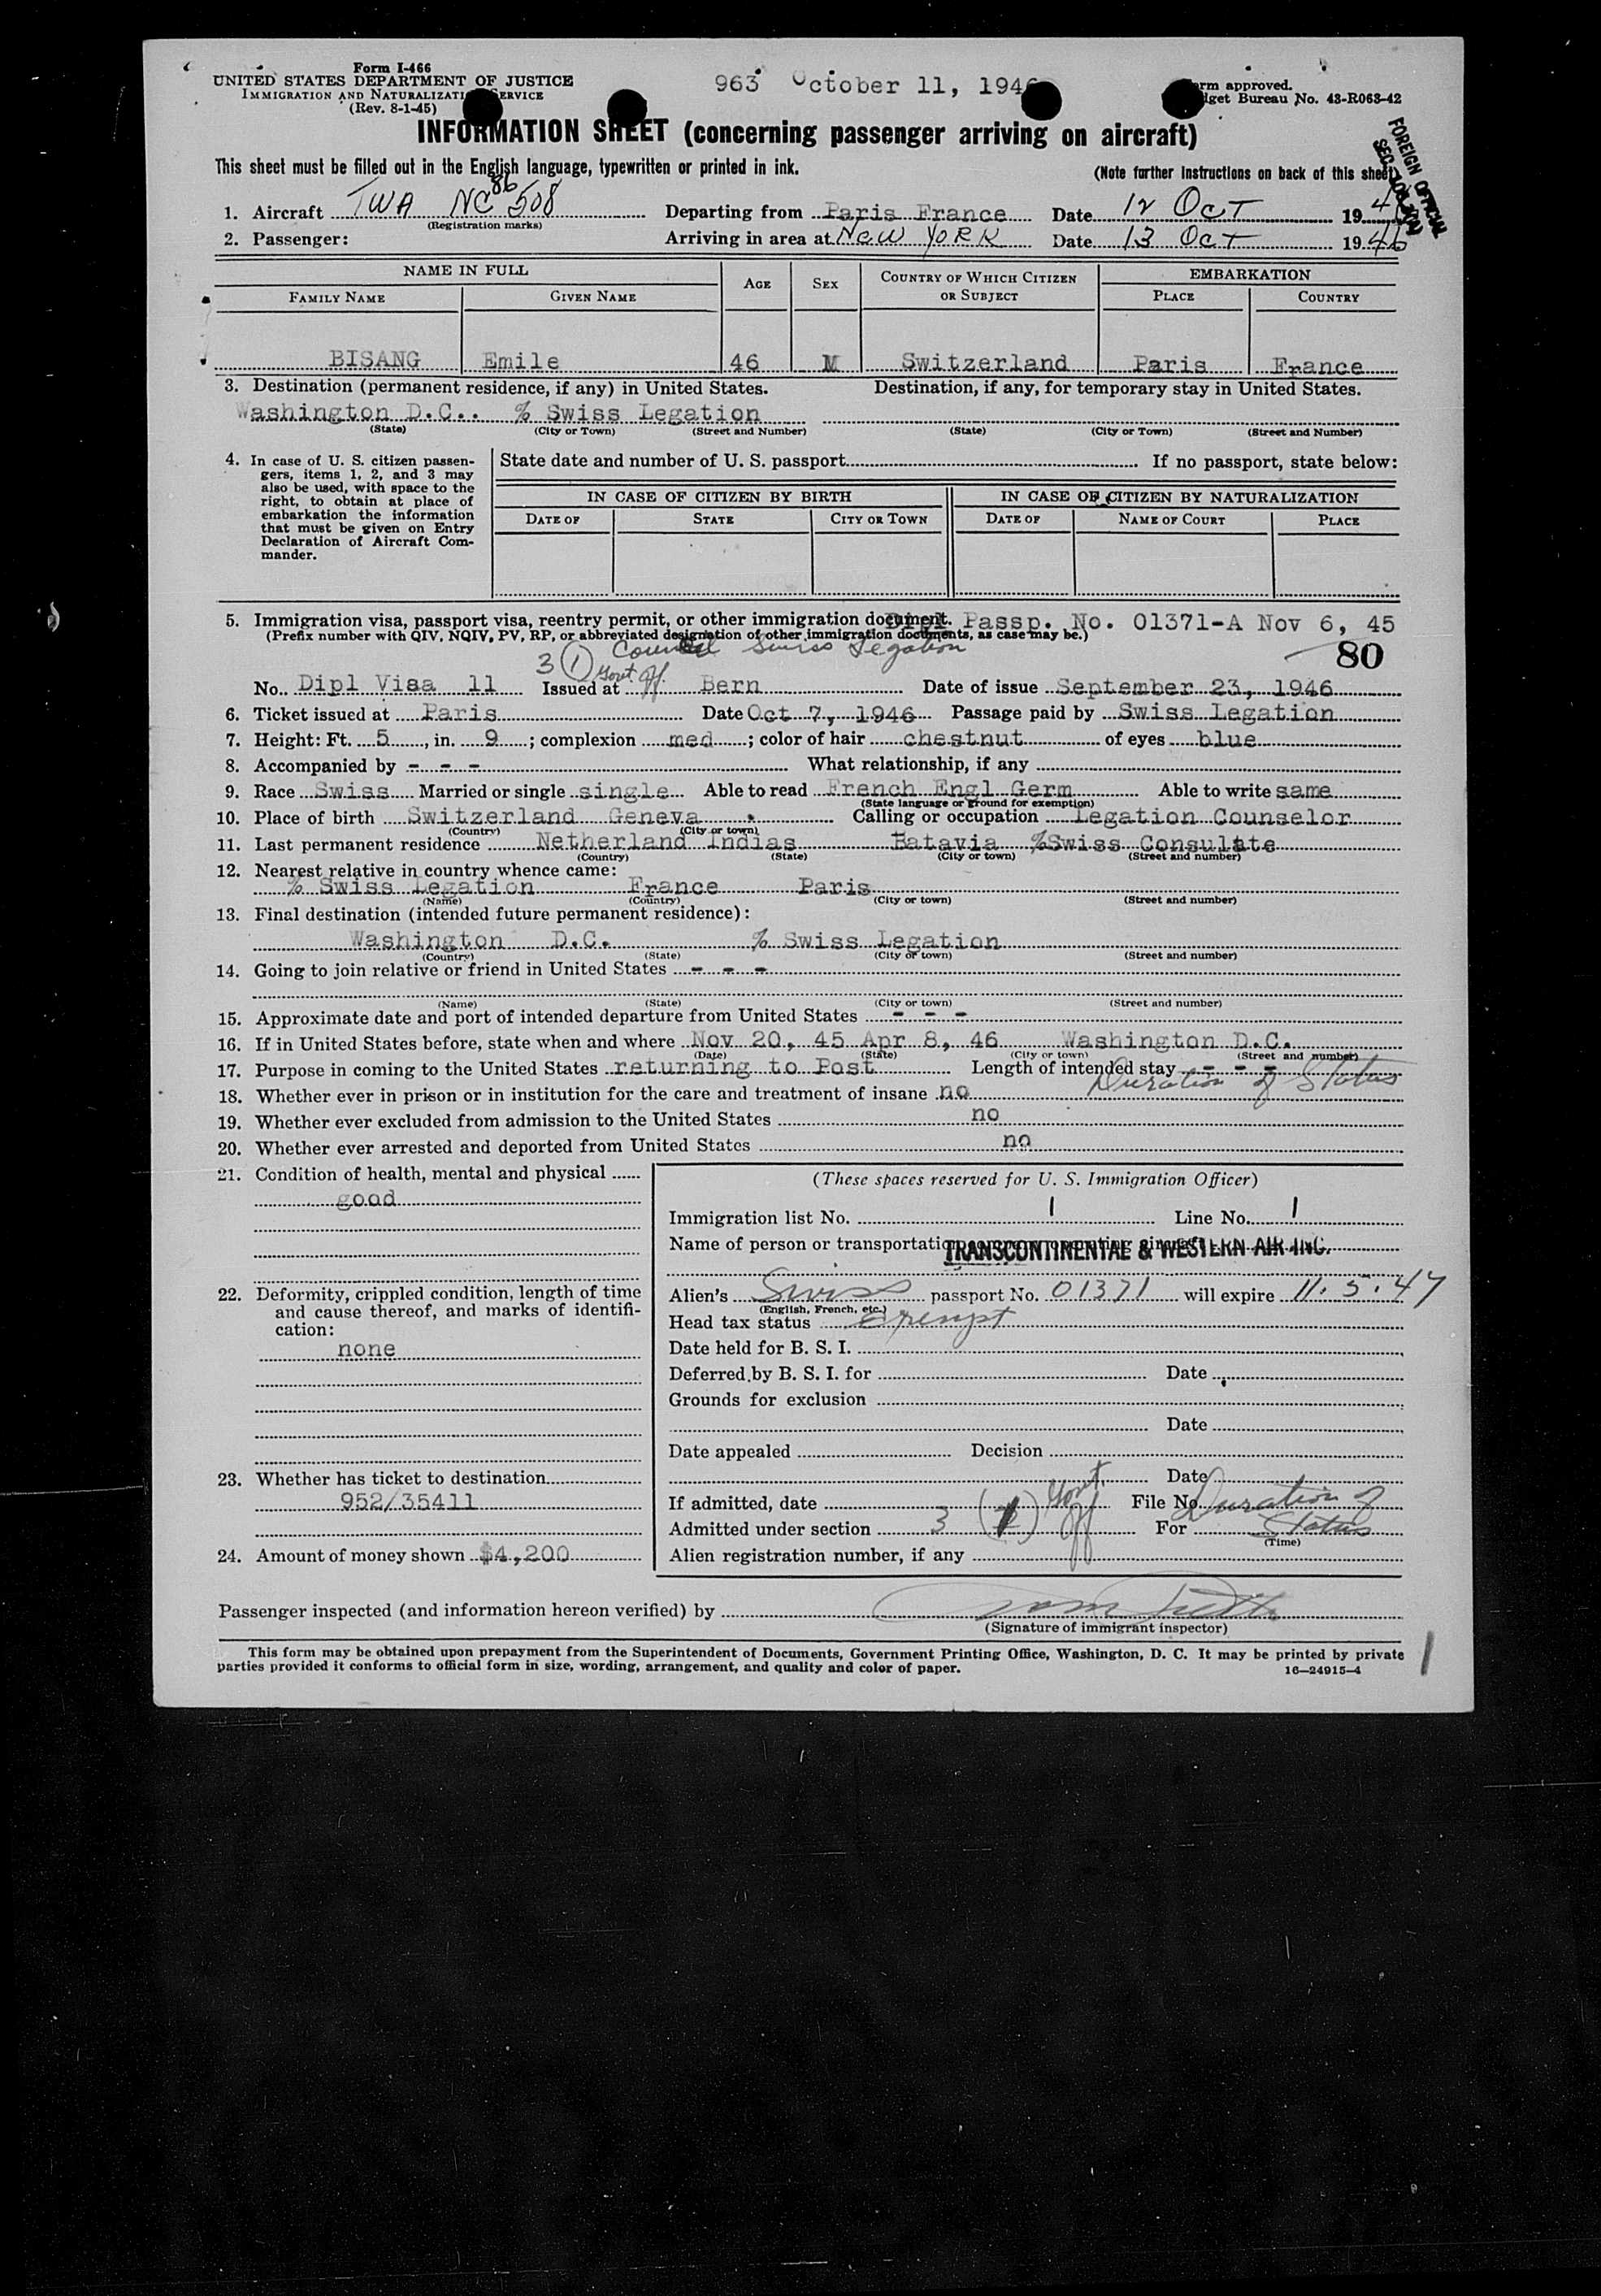 Form I-466
UNITED STATES DEPARTMENT OF JUSTICE
IMMIGRATION AND NATURALIZATION SERVICE
(Rev. 8-1-45)
963 October 11, 1946
Form approved.
Budget Bureau No. 43-R063-42
INFORMATION SHEET (concerning passenger arriving on aircraft)
This sheet must be filled out in the English language, typewritten or printed in ink.
(Note further instructions on back of this sheet)
FOREIGN OFFICIAL
1. Aircraft TWA NC 86508 Departing from Paris France Date 12 Oct 1946
(Registration marks)
2. Passenger: Arriving in area at New York Date 13 Oct 1946
NAME IN FULL AGE SEX COUNTRY OF WHICH CITIZEN OR SUBJECT EMBARKATION
FAMILY NAME GIVEN NAME PLACE COUNTRY
BISANG Emile 46 M Switzerland Paris France
3. Destination (permanent residence, if any) in United States. Destination, if any, for temporary stay in United States.
Washington D.C.. % Swiss Legation
(State) (City or Town) (Street and Number) (State) (City or Town) (Street and Number)
4. In case of U. S. citizen passen-
gers, items 1, 2, and 3 may
also be used, with space to the
right, to obtain at place of
embarkation the information
that must be given on Entry
Declaration of Aircraft Com-
mander.
State date and number of U. S. passport If no passport, state below:
IN CASE OF CITIZEN BY BIRTH IN CASE OF CITIZEN BY NATURALIZATION
DATE OF STATE CITY OR TOWN DATE OF NAME OF COURT PLACE
5. Immigration visa, passport visa, reentry permit, or other immigration document. Dipl Passp. No. 01371-A Nov 6, 45
(Prefix number with QIV, NQIV, PV, RP, or abbreviated designation of other immigration documents, as case may be.)
Counsel Swiss Legation
3 (1) Govt. Off. 80
No. Dipl Visa 11 Issued at Bern Date of issue September 23, 1946
6. Ticket issued at Paris Date Oct 7, 1946 Passage paid by Swiss Legation
7. Height: Ft. 5, in. 9; complexion med; color of hair chestnut of eyes blue
8. Accompanied by - - - What relationship, if any
9. Race Swiss Married or single single Able to read French Engl Germ Able to write same
(State language or ground for exemption)
10. Place of birth Switzerland Geneva Calling or occupation Legation Counselor
(Country) (City or town)
11. Last permanent residence Netherland Indias Batavia %Swiss Consulate
(Country) (State) (City or town) (Street and number)
12. Nearest relative in country whence came:
% Swiss Legation France Paris
(Name) (Country) (City or town) (Street and number)
13. Final destination (intended future permanent residence):
Washington D.C. % Swiss Legation
(Country) (State) (City or town) (Street and number)
14. Going to join relative or friend in United States - - -
(Name) (State) (City or town) (Street and number)
15. Approximate date and port of intended departure from United States - - -
16. If in United States before, state when and where Nov 20, 45 Apr 8, 46 Washington D.C.
(Date) (State) (City or town) (Street and number)
17. Purpose in coming to the United States returning to Post Length of intended stay - - -
Duration of Status
18. Whether ever in prison or in institution for the care and treatment of insane no
19. Whether ever excluded from admission to the United States no
20. Whether ever arrested and deported from United States no
21. Condition of health, mental and physical
good
22. Deformity, crippled condition, length of time
and cause thereof, and marks of identifi-
cation:
none
23. Whether has ticket to destination
952/35411
24. Amount of money shown $4,200
(These spaces reserved for U. S. Immigration Officer)
Immigration list No. 1 Line No. 1
Name of person or transportation company operating aircraft TRANSCONTINENTAL & WESTERN AIR INC.
Alien's Swiss passport No. 01371 will expire 11.5.47
(English, French, etc.)
Head tax status Exempt
Date held for B. S. I.
Deferred by B. S. I. for Date
Grounds for exclusion
Date
Date appealed Decision
Date
If admitted, date File No.
Admitted under section 3 (1) Govt. Off For Duration of Status
(Time)
Alien registration number, if any
Passenger inspected (and information hereon verified) by
(Signature of immigrant inspector)
This form may be obtained upon prepayment from the Superintendent of Documents, Government Printing Office, Washington, D. C. It may be printed by private
parties provided it conforms to official form in size, wording, arrangement, and quality and color of paper. 16—24915-4
1